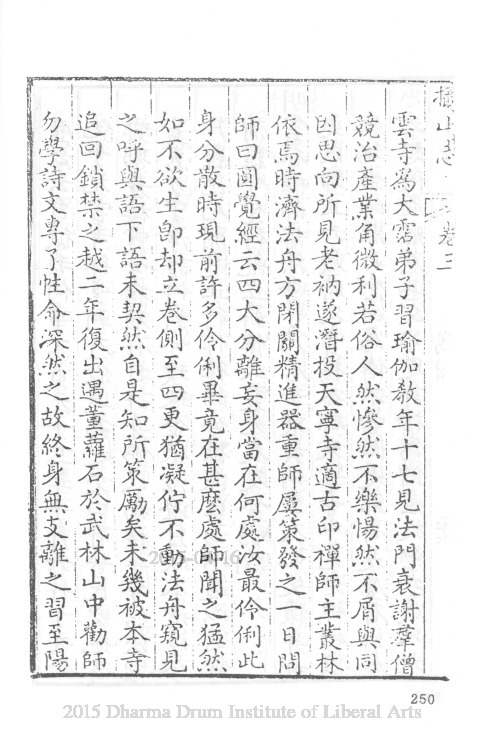 攝山志 卷三
雲寺爲大霑弟子習瑜伽教年十七見法門衰謝羣僧
競治產業角微利若俗人然慘然不樂惕然不屑與同
因思向所見老衲遂潛投天寧寺適古印禪師主叢林
依焉時濟法舟方閉關精進器重師屢策發之一日問
師曰圓覺經云四大分離妄身當在何處汝最伶俐此
身分散時現前許多伶俐畢竟在甚麼處師聞之猛然
如不欲生卽却立巷側至四更猶凝佇不動法舟窺見
之呼與語下語未契然自是知所策勵矣未幾被本寺
追回鎖禁之越二年復出遇董蘿石於武林山中勸師
勿學詩文專了性命深然之故終身無支離之習至陽
250
2015 Dharma Drum Institute of Liberal Arts